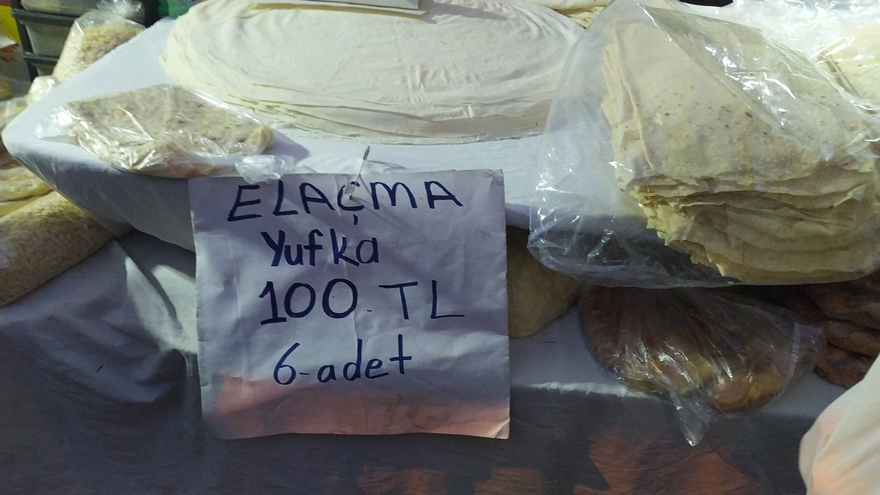 ELAÇMA
Yufka
100 TL
6-adet